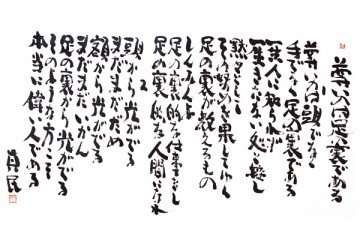 尊いのは足の裏である
1
尊いのは頭でなく
手でなく足の裏である
一生人に知られず
一生きたない処と接し
黙々として
その努めを果してゆく
足の裏が教えるもの
しんみんよ
足の裏的な仕事をし
足の裏的な人間になれ
2
頭から光がでる
まだまだだめ
額から光がでる
まだまだいかん
足の裏から光がでる
そのような方こそ
本当に偉い人である
真民